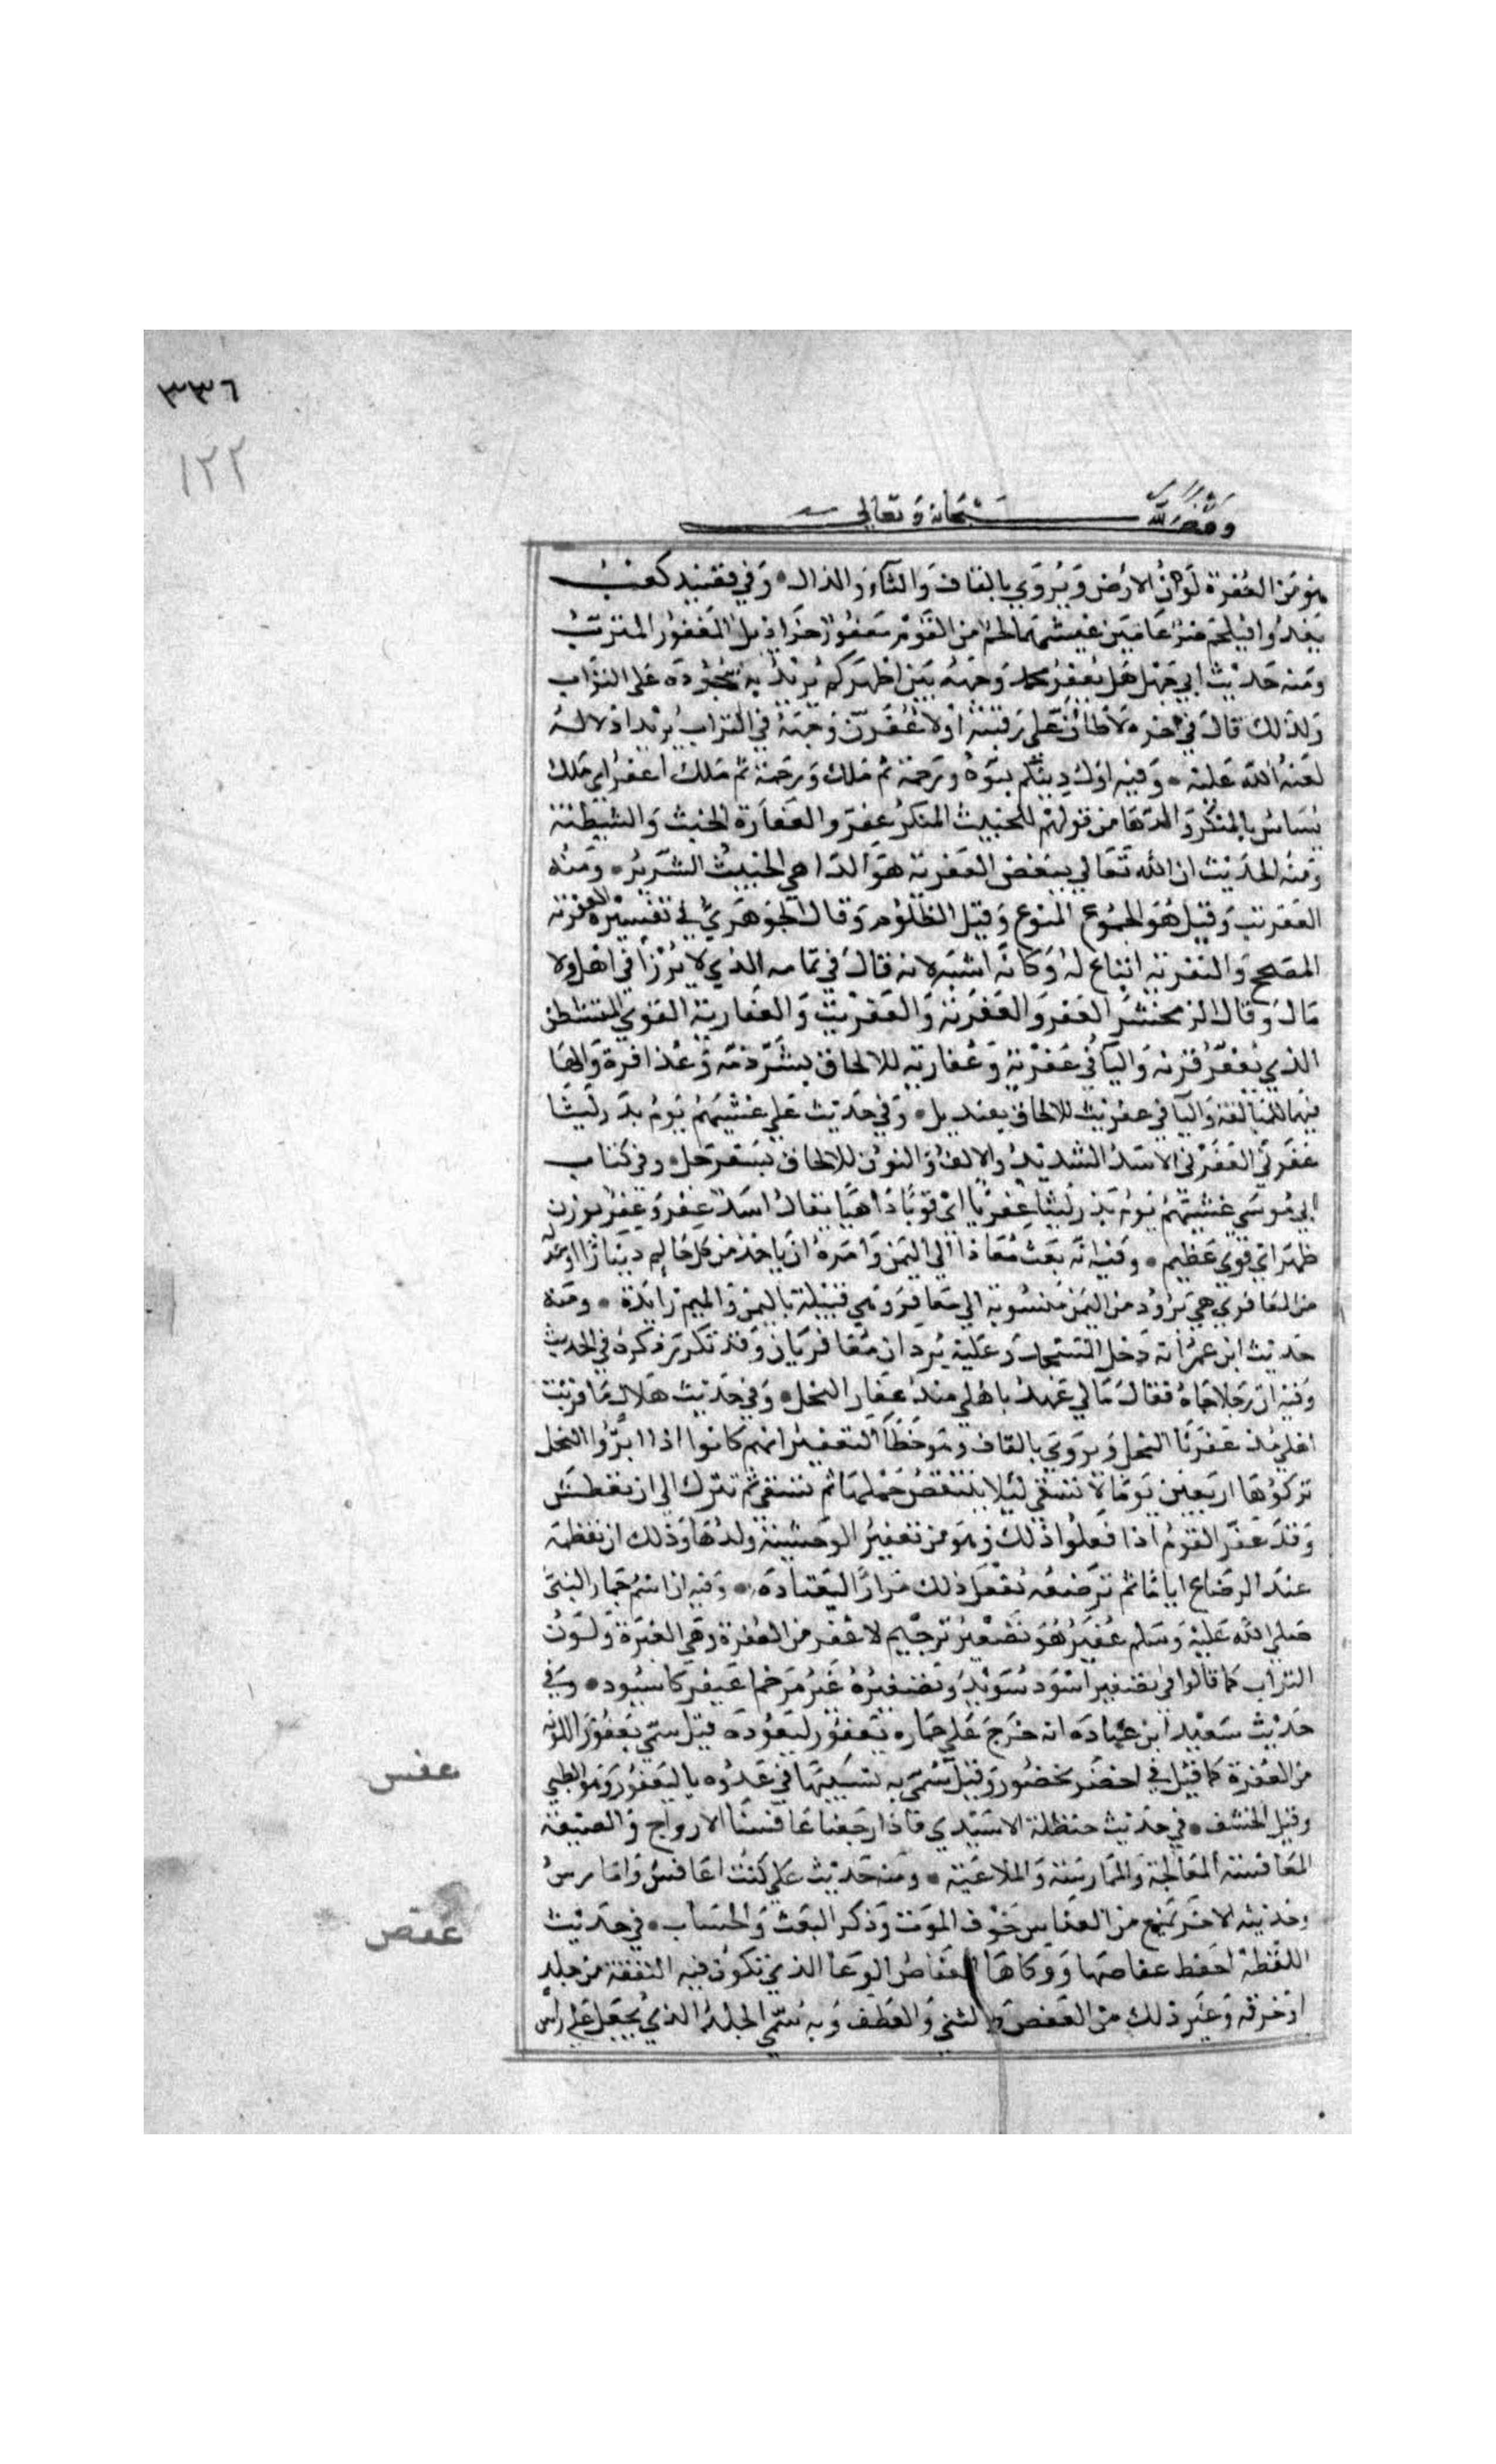 ٣٣٦
١٢٢
وقف لله سبحانه وتعالى
هو من العفرة لون الارض ويروي بالقاف والثاء والذال وفي قصيد كعب
يغدوا فيلحم ضرغامين عيشهما لحم من القوم معفور خراذيل المعفور المترب
ومنه حديث ابي جهل هل يعفر محمد وجهه بين اظهركم يريد به سجوده على التراب
ولذلك قال في اخره لاطأن على رقبته او لاعفرن وجهه في التراب يريد اذلاله
لعنه الله عليه وفيه اول دينكم نبوة ورحمة ثم ملك ورحمة ثم ملك اعفر اي ملك
يساس بالمنكر والدها من قولهم للخبيث المنكر عفر والعفارة الخبث والشيطنة
ومنه الحديث ان الله تعالى يبغض العفرية هو الداهي الخبيث الشرير ومنه
العفريت وقيل هو الجموع المنوع وقيل الظلوم وقال الجوهري في تفسيره العفرية
المصحح والنفرية اتباع له وكانه اشبه لانه قال في تمامه الذي لا يرزأ في اهل ولا
مال وقال الزمخشري العفر والعفرية والعفريت والعفارية القوي المتشيطن
الذي يعفر قرنه واليا في عفرية وعفارية للالحاق بشرذمة وعذافرة والها
فيهما للمبالغة واليا في عفريت للالحاق بقنديل وفي حديث علي غشيهم يوم بدر ليثا
عفرني العفرني الاسد الشديد والالف والنون للالحاق بسفرجل وفي كتاب
ابي موسى غشيتهم يوم بدر ليثا عفريا اي قويا داهيا يقال اسد عفر وعفر بوزن
طمر اي قوي عظيم وفيه انه بعث معاذا الى اليمن وامره ان ياخذ من كل حالم دينارا او عدله
من المعافري هي برود من اليمن منسوبة الى معافر وهي قبيلة باليمن والميم زايدة ومنه
حديث ابن عمر انه دخل المسجد وعليه بردان معافريان وقد تكرر ذكره في الحديث
وفيه ان رجلا جاه فقال مالي عهد باهلي منذ عفار النخل وفي حديث هلال ما قربت
اهلي مذ عفرنا النخل ويروي بالقاف وهو خطأ التعفير انهم كانوا اذا ابروا النخل
تركوها اربعين يوما لا تسقي لئلا ينتقص حملها ثم تسقى ثم تترك الى ان تعطش
وقد عفر القوم اذا فعلوا ذلك وهو من تعفير الوحشية ولدها وذلك ان تفطمه
عند الرضاع اياما ثم ترضعه تفعل ذلك مرارا ليعتاده وفيه ان اسم حمار النبي
صلى الله عليه وسلم عفير هو تصغير ترخيم لاعفر من العفرة وهي الغبرة ولون
التراب كما قالوا في تصغير اسود سويد وتصغيره غير مرخم اعيفر كاسيود وفي
حديث سعيد ابن عبادة انه خرج على حماره يعفور ليعوده قيل سمي يعفور اللونه
من العفرة كما قيل في اخضر يخضور وقيل سمي به تشبيها في عدوه باليعفور وهو الظبي
وقيل الخشف في حديث حنظلة الاسيدي فاذا رجعنا عافسنا الازواج والضيعة
المعافسة المعالجة والممارسة والملاعبة ومنه حديث علي كنت اعافس وامارس
وحديثه الاخر يمنع من العفاس خوف الموت وذكر البعث والحساب في حديث
اللقطة احفظ عفاصها ووكاها العفاص الوعا الذي تكون فيه النفقة من جلد
او خرقة وغير ذلك من العفص وهو الثني والعطف وبه سمي الجلد الذي يجعل على راس
عفس
عفص